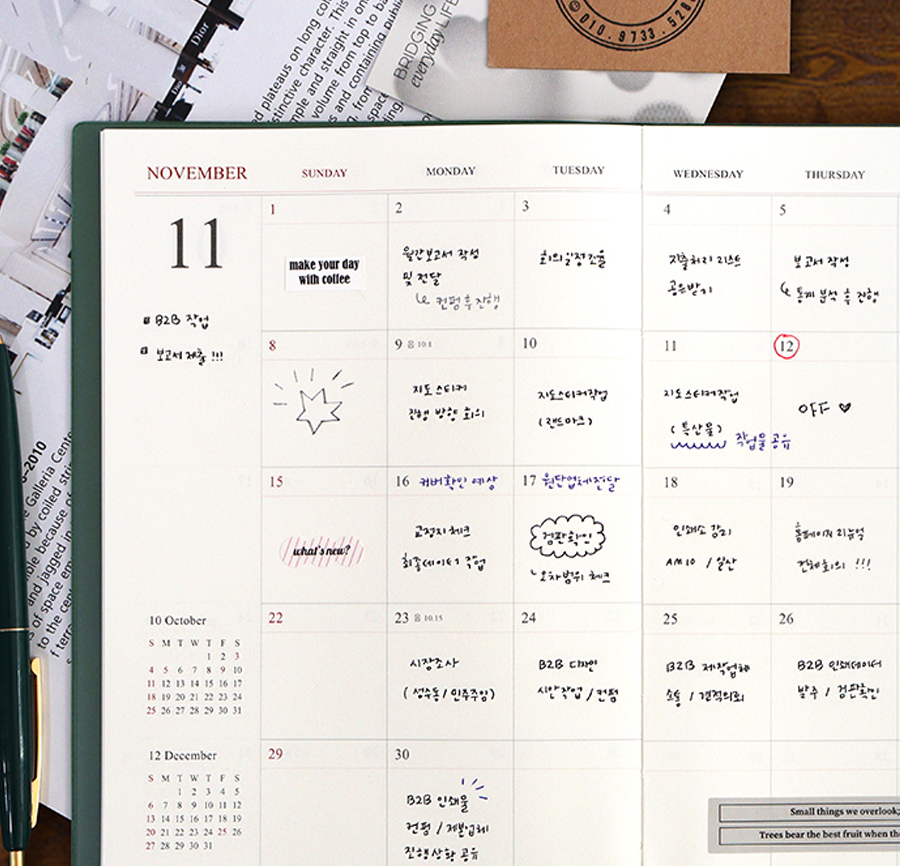 Dior
BRIDGING
everyday LIFE
010.9733.528
plateaus on long
distinctive character. This
simple and straight in
volume from top to
and containing
space
-2010
Galleria Center
by coiled
because of
and jagged in
of space
to the
NOVEMBER
SUNDAY
MONDAY
TUESDAY
WEDNESDAY
THURSDAY
11
B2B 작업
보고서 제출 !!!
1
make your day
with coffee
2
월간보고서 작성
및 전달
↳ 컨펌 후 진행
3
회의 일정 조율
4
지출처리 리스트
공유받기
5
보고서 작성
↳ 통계 분석 후 진행
8
9 음 10.1
지도스티커
진행 방향 회의
10
지도스티커작업
(랜드마크)
11
지도스티커작업
(특산물)
작업물 공유
12
OFF ♥
15
what's new?
16 커버확인 예상
교정지 체크
최종데이터 작업
17 원단업체전달
검판확인
오차범위 체크
18
인쇄소 감리
AM10 / 일산
19
홈페이지 리뉴얼
전체회의 !!!
10 October
S M T W T F S
1 2 3
4 5 6 7 8 9 10
11 12 13 14 15 16 17
18 19 20 21 22 23 24
25 26 27 28 29 30 31
22
23 음 10.15
시장조사
(성수동/민주주임)
24
B2B 디자인
시안작업 / 컨펌
25
B2B 제작업체
소통 / 견적의뢰
26
B2B 인쇄데이터
발주 / 검판확인
12 December
S M T W T F S
1 2 3 4 5
6 7 8 9 10 11 12
13 14 15 16 17 18 19
20 21 22 23 24 25 26
27 28 29 30 31
29
30
B2B 인쇄물
컨펌 / 제본업체
진행상황 공유
Small things we overlook;
Trees bear the best fruit when the